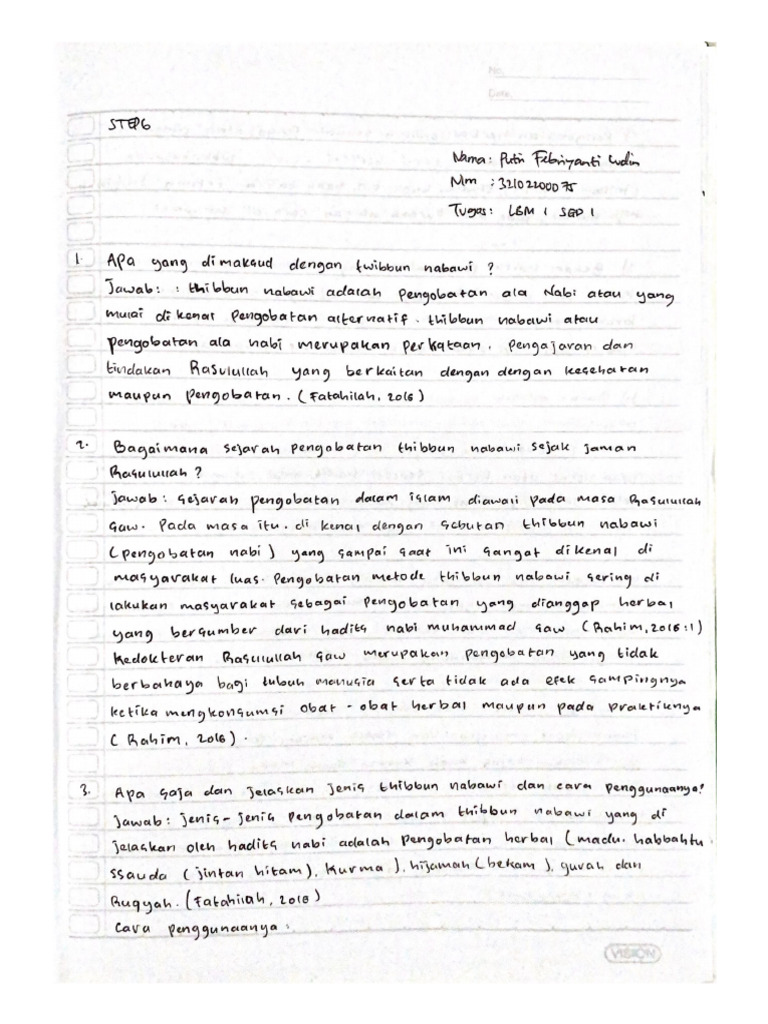 No.
Date.
STEP6
Nama: Putri Febriyanti Ludin
Nim : 32102200075
Tugas: LBM 1 SGD 1
1. Apa yang dimaksud dengan twibbun nabawi ?
Jawab: : thibbun nabawi adalah pengobatan ala Nabi atau yang
mulai dikenal pengobatan alternatif. thibbun nabawi atau
pengobatan ala nabi merupakan perkataan, pengajaran dan
tindakan Rasulullah yang berkaitan dengan dengan kesehatan
maupun pengobatan. (Fatahilah, 2016)
2. Bagaimana sejarah pengobatan thibbun nabawi sejak jaman
Rasulullah ?
Jawab: sejarah pengobatan dalam islam diawali pada masa Rasulullah
saw. Pada masa itu. di kenal dengan sebutan thibbun nabawi
(pengobatan nabi) yang sampai saat ini sangat dikenal di
masyarakat luas. Pengobatan metode thibbun nabawi sering di
lakukan masyarakat sebagai pengobatan yang dianggap herbal
yang bersumber dari hadits nabi muhammad saw (Rahim, 2016:1)
Kedokteran Rasulullah saw merupakan pengobatan yang tidak
berbahaya bagi tubuh manusia serta tidak ada efek sampingnya
ketika mengkonsumsi obat - obat herbal maupun pada praktiknya
(Rahim, 2016).
3. Apa saja dan jelaskan jenis thibbun nabawi dan cara penggunaanya?
Jawab: jenis-jenis pengobatan dalam thibbun nabawi yang di
jelaskan oleh hadits nabi adalah pengobatan herbal (madu. habbahtu
ssauda (jintan hitam), kurma), hijamah (bekam), gurah dan
Ruqyah. (Fatahilah, 2016)
Cara penggunaanya :
VISION